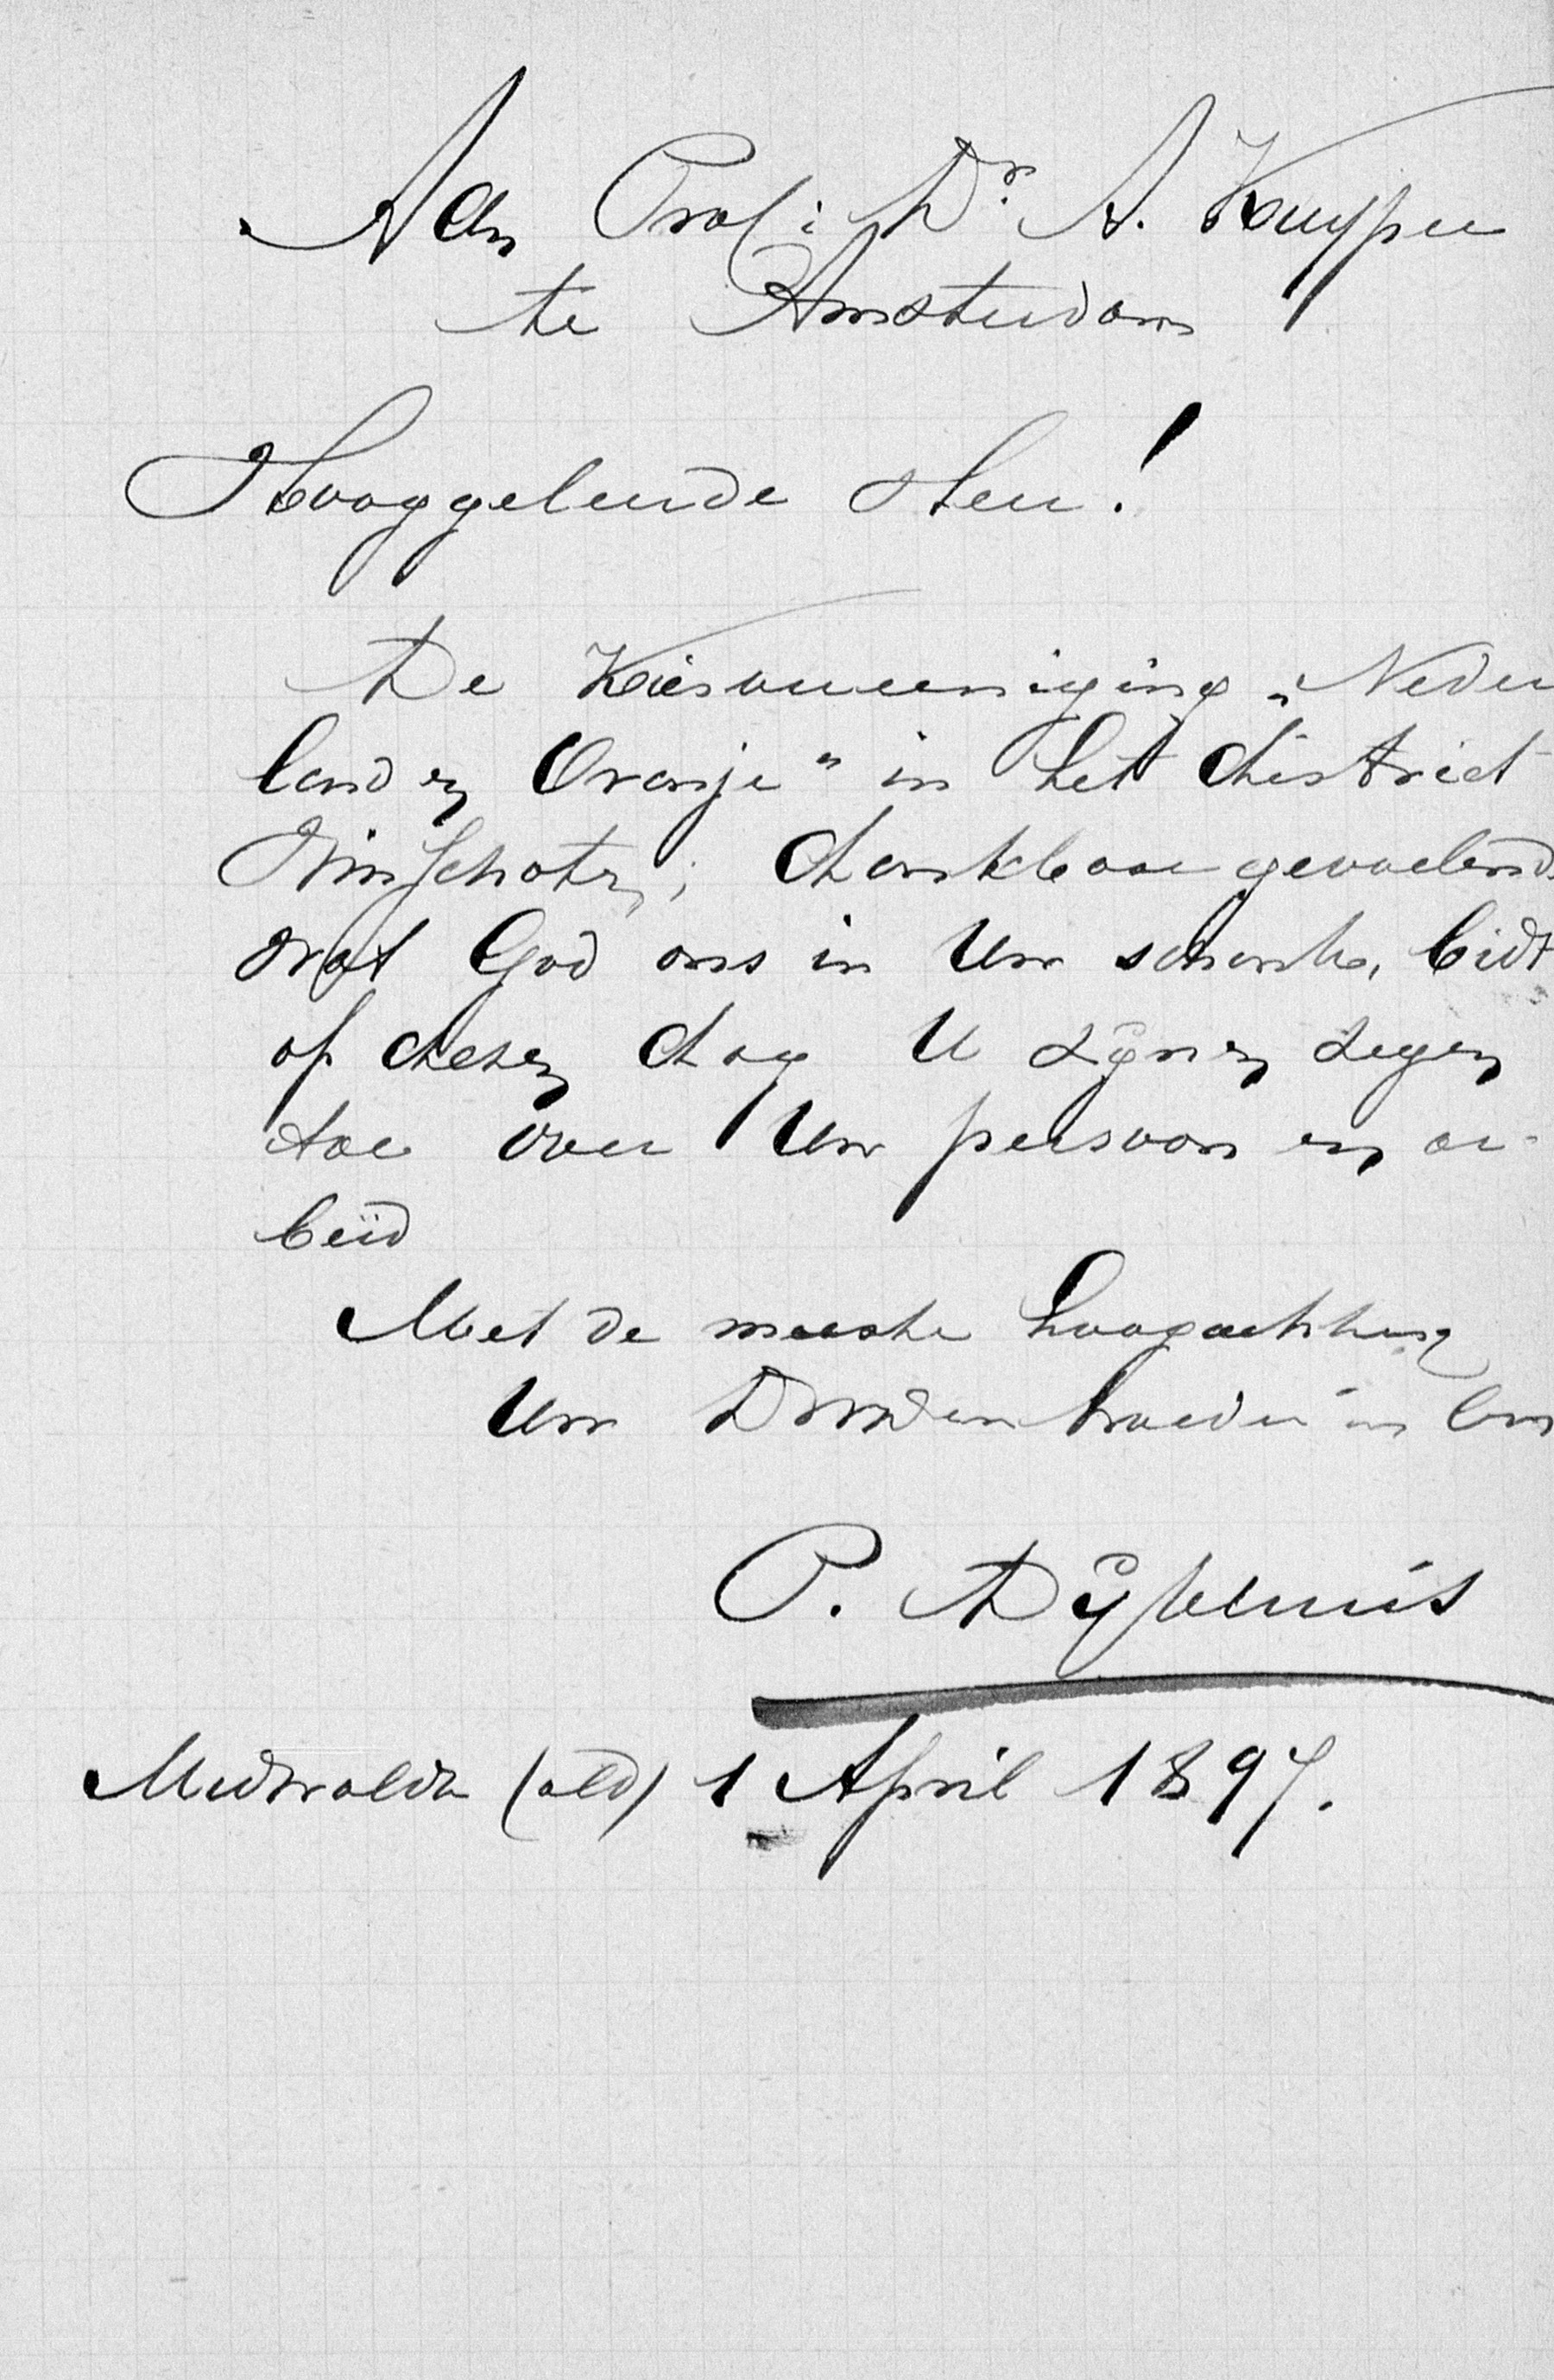 Aan Prof: Dr. A. Kuyper
te Amsterdam
Hooggeleerde Heer!
De Kiesvereeniging „Neder
land en Oranje" in het district
Winschoten, dankbaar gevoelend
wat God ons in Uw schonk, bidt
op dezen dag U zijnen zegen
toe over Uw persoon en ar-
beid
Met de meeste hoogachting
Uw Dw dn broeder in
P. Dijkhuis
Midwolda (old) 1 April 1897.